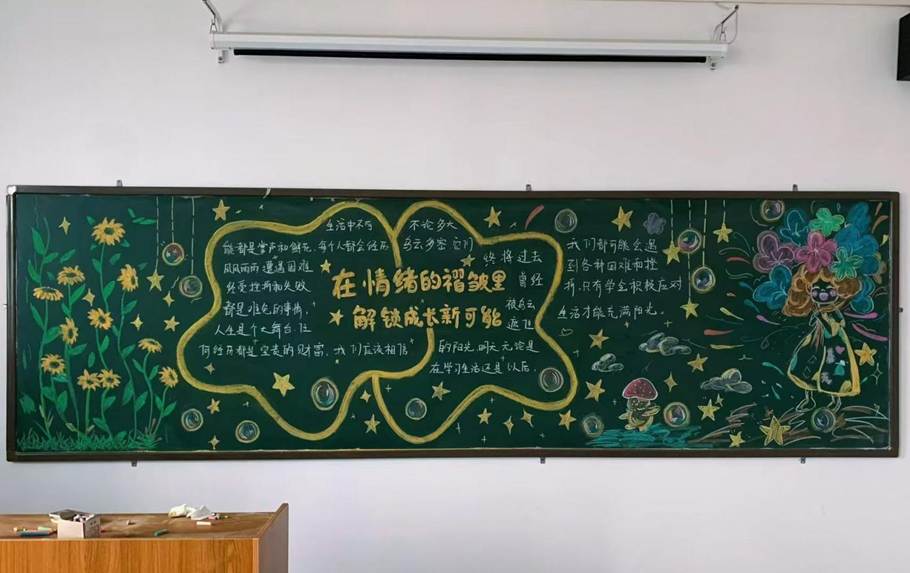 生活中不可
能都是掌声和鲜花,每个人都会经历
风风雨雨遭遇困难
经受挫折和失败
都是难免的事情,
人生是个大舞台,任
何经历都是宝贵的财富,我们应该相信
在情绪的褶皱里
解锁成长新可能
不论多大
乌云多密,它们
终将过去
曾经
被乌云
遮住
的阳光,明天无论是
在学习生活还是以后,
我们都可能会遇
到各种困难和挫
折,只有学会积极应对
生活才能充满阳光。